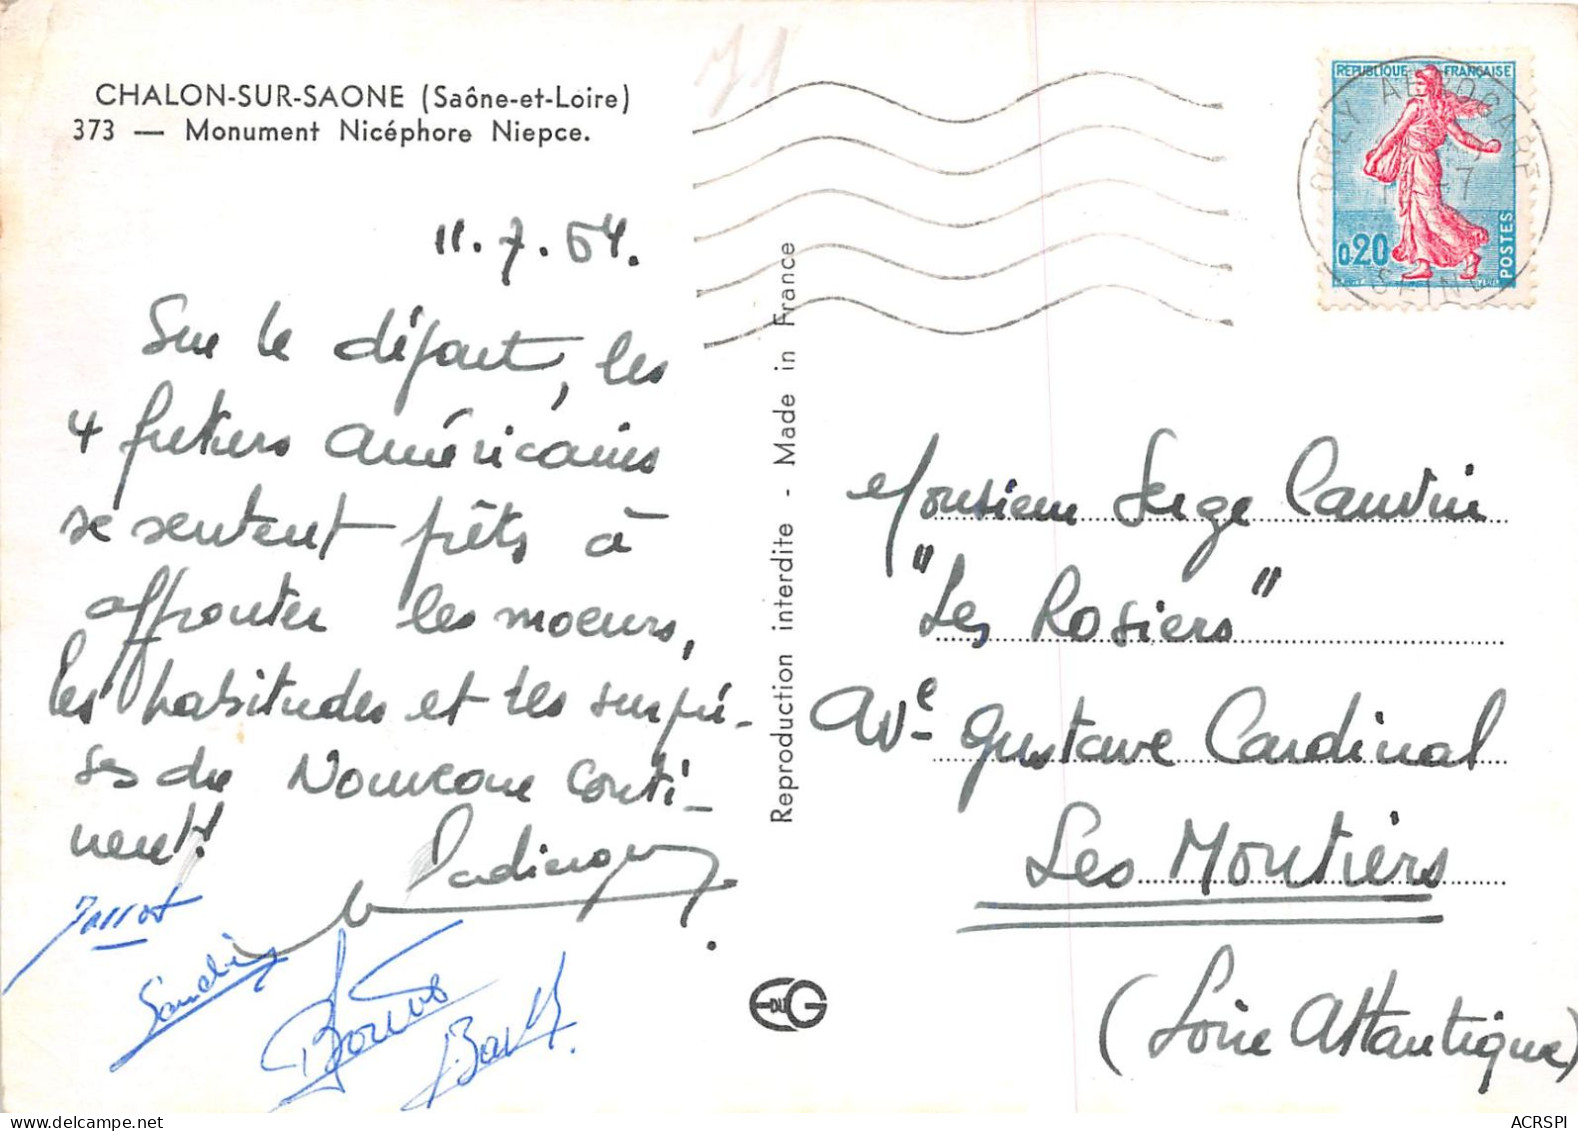 CHALON-SUR-SAONE (Saône-et-Loire)
373 — Monument Nicéphore Niepce.
71
REPUBLIQUE FRANÇAISE
0,20
POSTES
ORLY AEROGARE
SEINE
11.7.64.
Sur le départ, les
4 futurs américains
se sentent prêts à
affronter les moeurs,
les habitudes et les surpri-
ses du Nouveau conti-
nent!
Jarrot
Reproduction interdite - Made in France
Monsieur Serge Cauvin
"Les Rosiers"
Ave Gustave Cardinal
Les Moutiers
(Loire Atlantique)
ACRSPI